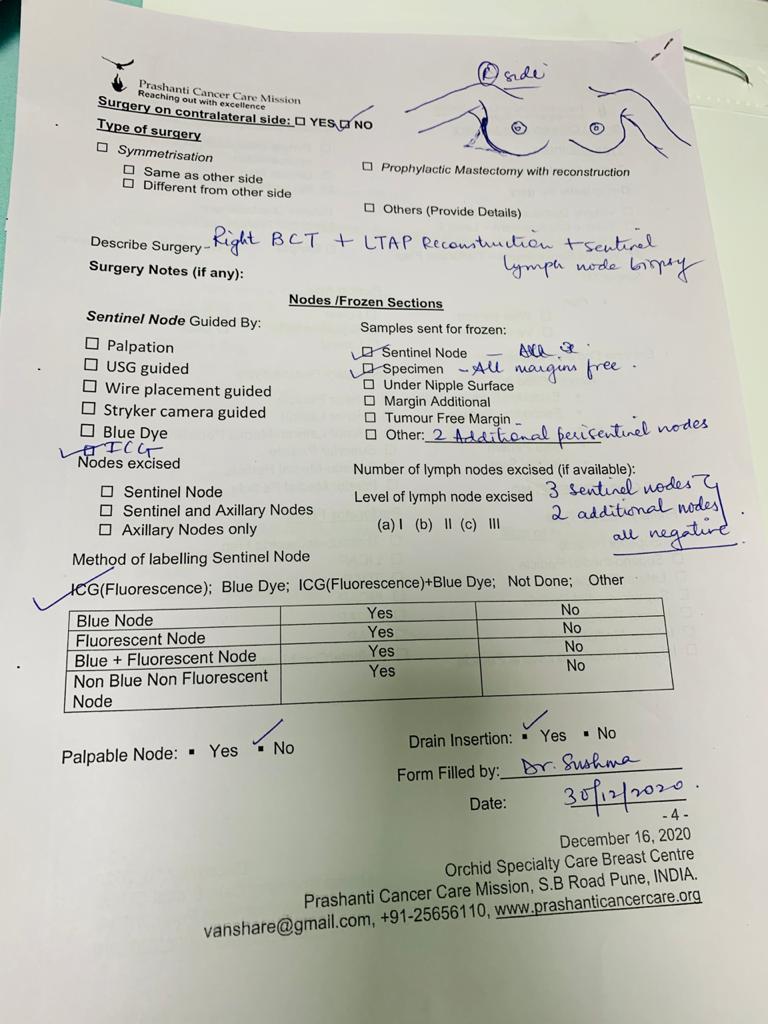 Ⓡ side
Prashanti Cancer Care Mission
Reaching out with excellence
Surgery on contralateral side: ☐ YES ☑ NO
Type of surgery
☐ Symmetrisation
☐ Same as other side
☐ Different from other side
☐ Prophylactic Mastectomy with reconstruction
☐ Others (Provide Details)
Describe Surgery - Right BCT + LTAP Reconstruction + sentinel
lymph node biopsy
Surgery Notes (if any):
Nodes /Frozen Sections
Sentinel Node Guided By:
☐ Palpation
☐ USG guided
☐ Wire placement guided
☐ Stryker camera guided
☐ Blue Dye
☑ ICG
Nodes excised
☐ Sentinel Node
☐ Sentinel and Axillary Nodes
☐ Axillary Nodes only
Samples sent for frozen:
☑ Sentinel Node - All
☑ Specimen - All margins free.
☐ Under Nipple Surface
☐ Margin Additional
☐ Tumour Free Margin
☐ Other: 2 Additional perisentinel nodes
Number of lymph nodes excised (if available):
Level of lymph node excised 3 sentinel nodes
2 additional nodes
(a) I (b) II (c) III all negative.
Method of labelling Sentinel Node
✓ ICG(Fluorescence); Blue Dye; ICG(Fluorescence)+Blue Dye; Not Done; Other
Blue Node Yes No
Fluorescent Node Yes No
Blue + Fluorescent Node Yes No
Non Blue Non Fluorescent Yes No
Node
Palpable Node: ▪ Yes ▪ ✓ No
Drain Insertion: ▪ ✓ Yes ▪ No
Form Filled by: Dr. Sushma
Date: 30/12/2020.
- 4 -
December 16, 2020
Orchid Specialty Care Breast Centre
Prashanti Cancer Care Mission, S.B Road Pune, INDIA.
vanshare@gmail.com, +91-25656110, www.prashanticancercare.org